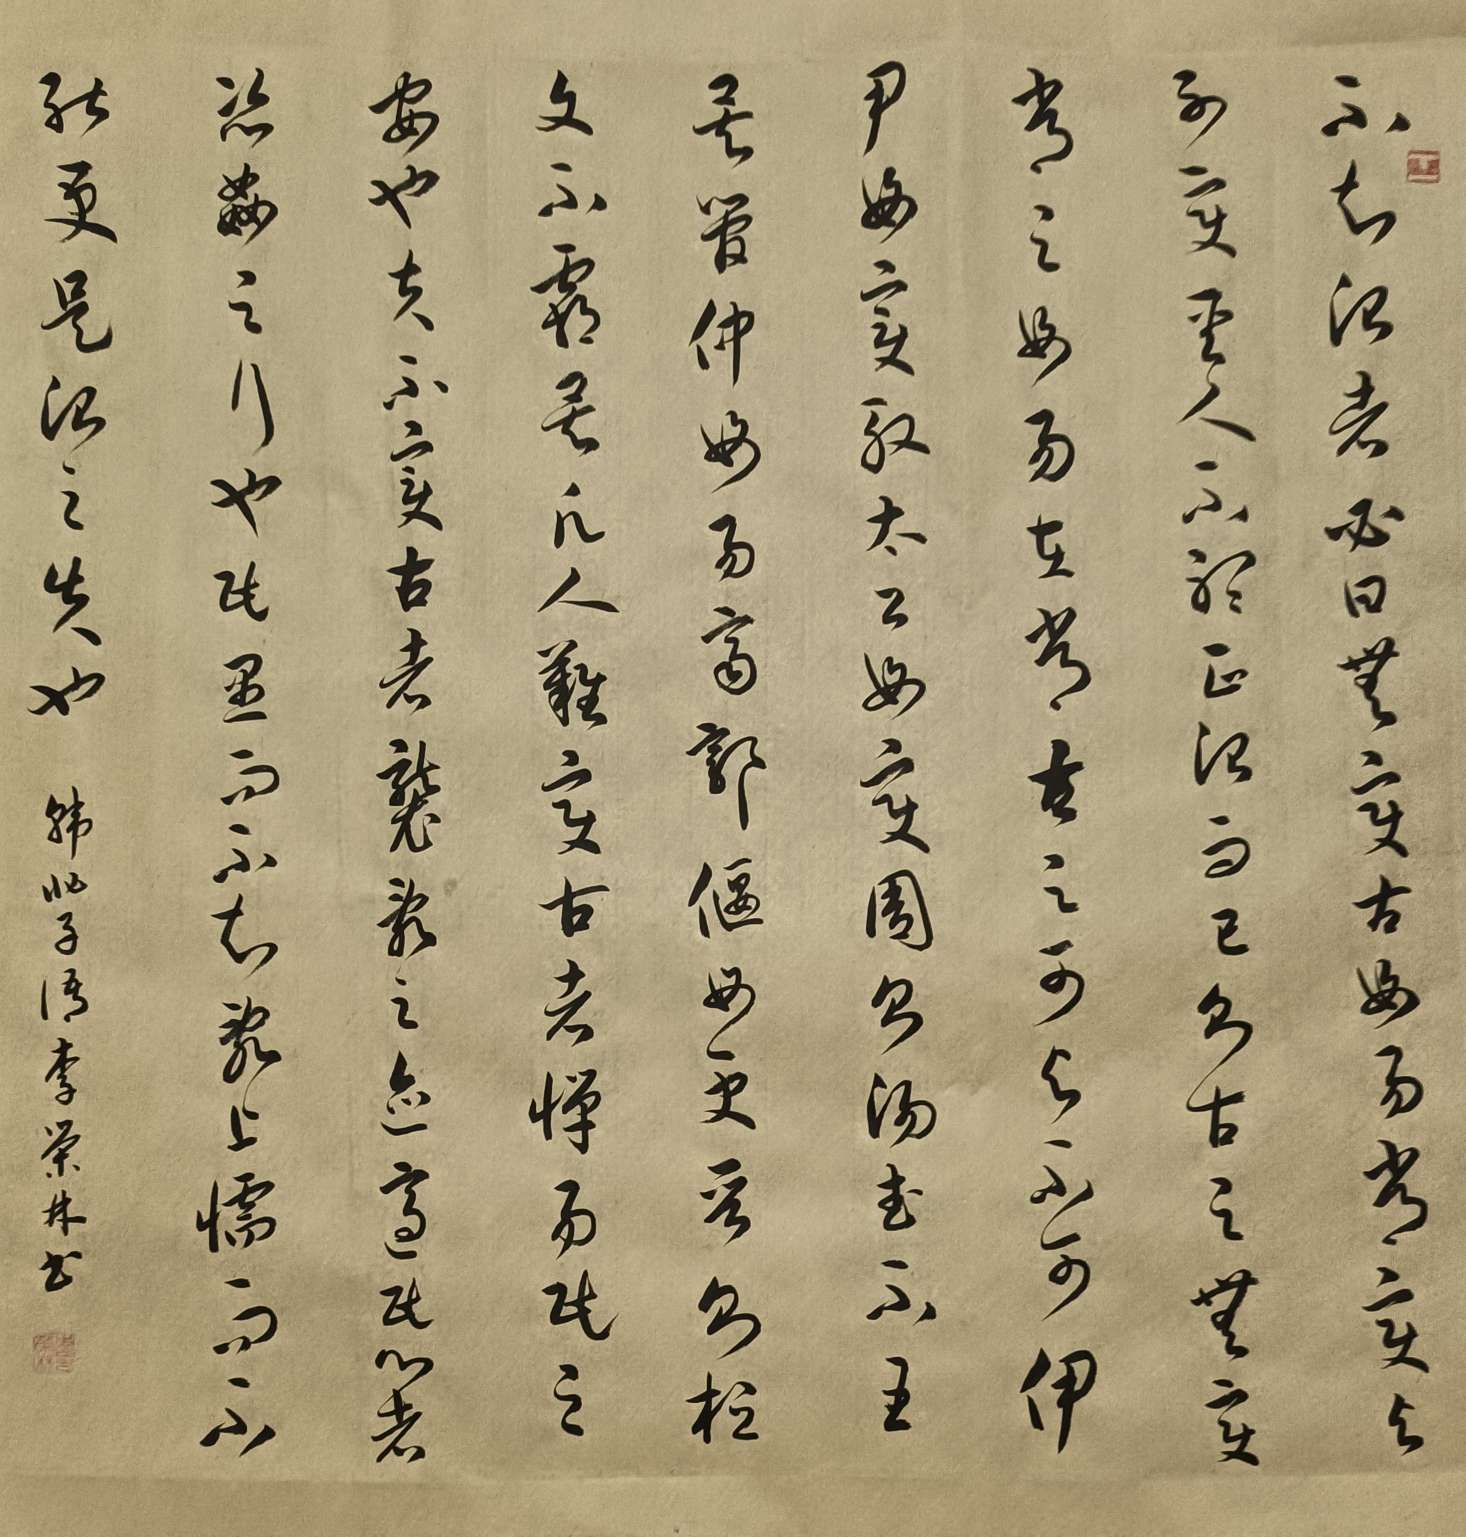 不知治者必曰無變古毋易常變與
不變聖人不聽正治而已則古之無變
常之毋易在常古之可與不可伊
尹毋變殷太公毋變周則湯武不王
矣管仲毋易齊郭偃毋更晉則桓
文不霸矣凡人難變古者憚易民之
安也夫不變古者襲亂之迹適民心者
恣姦之行也民愚而不知亂上懦而不
能更是治之失也 韓非子語李榮林書